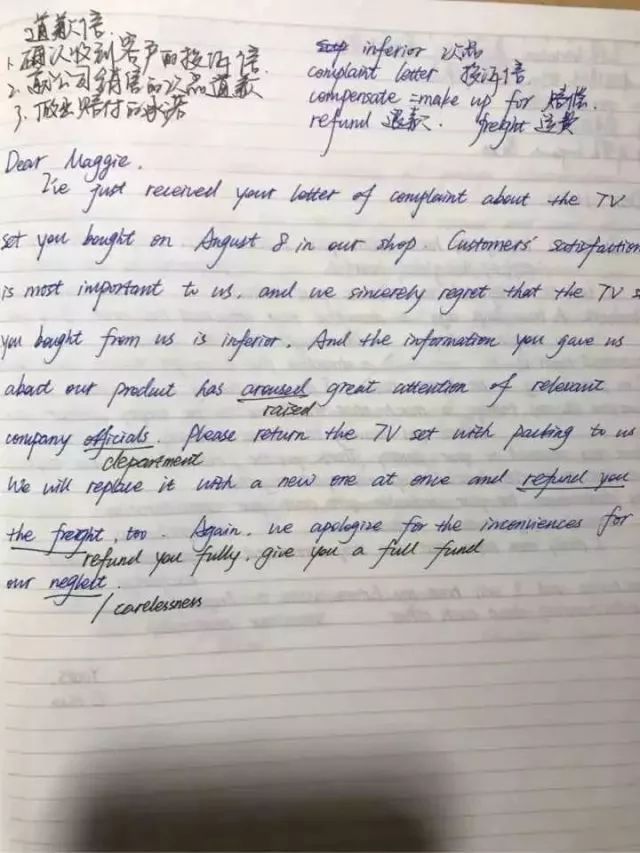 道歉信
1. 确认收到客户的投诉信.
2. 为公司销售的次品道歉
3. 做出赔付的承诺
inferior 次品
complaint lotter 投诉信
compensate =make up for 赔偿.
refund 退款. freight 运费
Dear Maggie.
I've just received your lotter of complaint about the TV
set you bought on August 8 in our shop. Customers' satisfaction
is most important to us, and we sincerely regret that the TV s
you bought from us is inferior. And the information you gave us
about our product has aroused great attention of relevant
raised
company officials. Please return the TV set with packing to us
department
We will replace it with a new one at once and refund you
the freight, too. Again, we apologize for the inconviences for
refund you fully. give you a full fund
our neglect.
/ carelessness